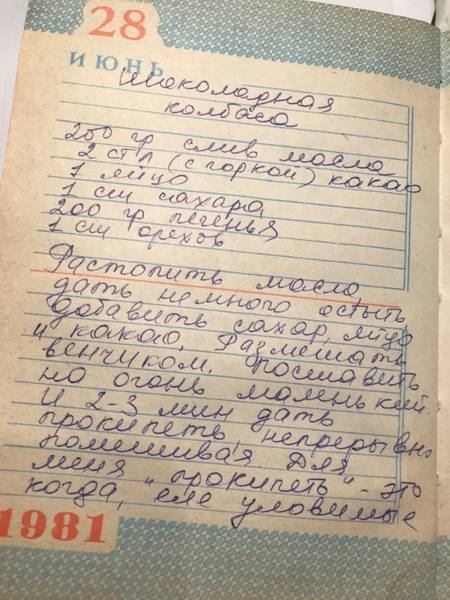 28
ИЮНЬ
Шоколадная
колбаса
250 гр слив масла
2 стл (с горкой) какао
1 яйцо
1 ст сахара
200 гр печенья
1 ст орехов
Растопить масло,
дать немного остыть
добавить сахар, яйцо
и какао. Размешать
венчиком. Поставить
на огонь маленький.
И 2-3 мин дать
прокипеть непрерывно
помешивая. Для
меня "прокипеть" - это
когда, еле уловимые
1981